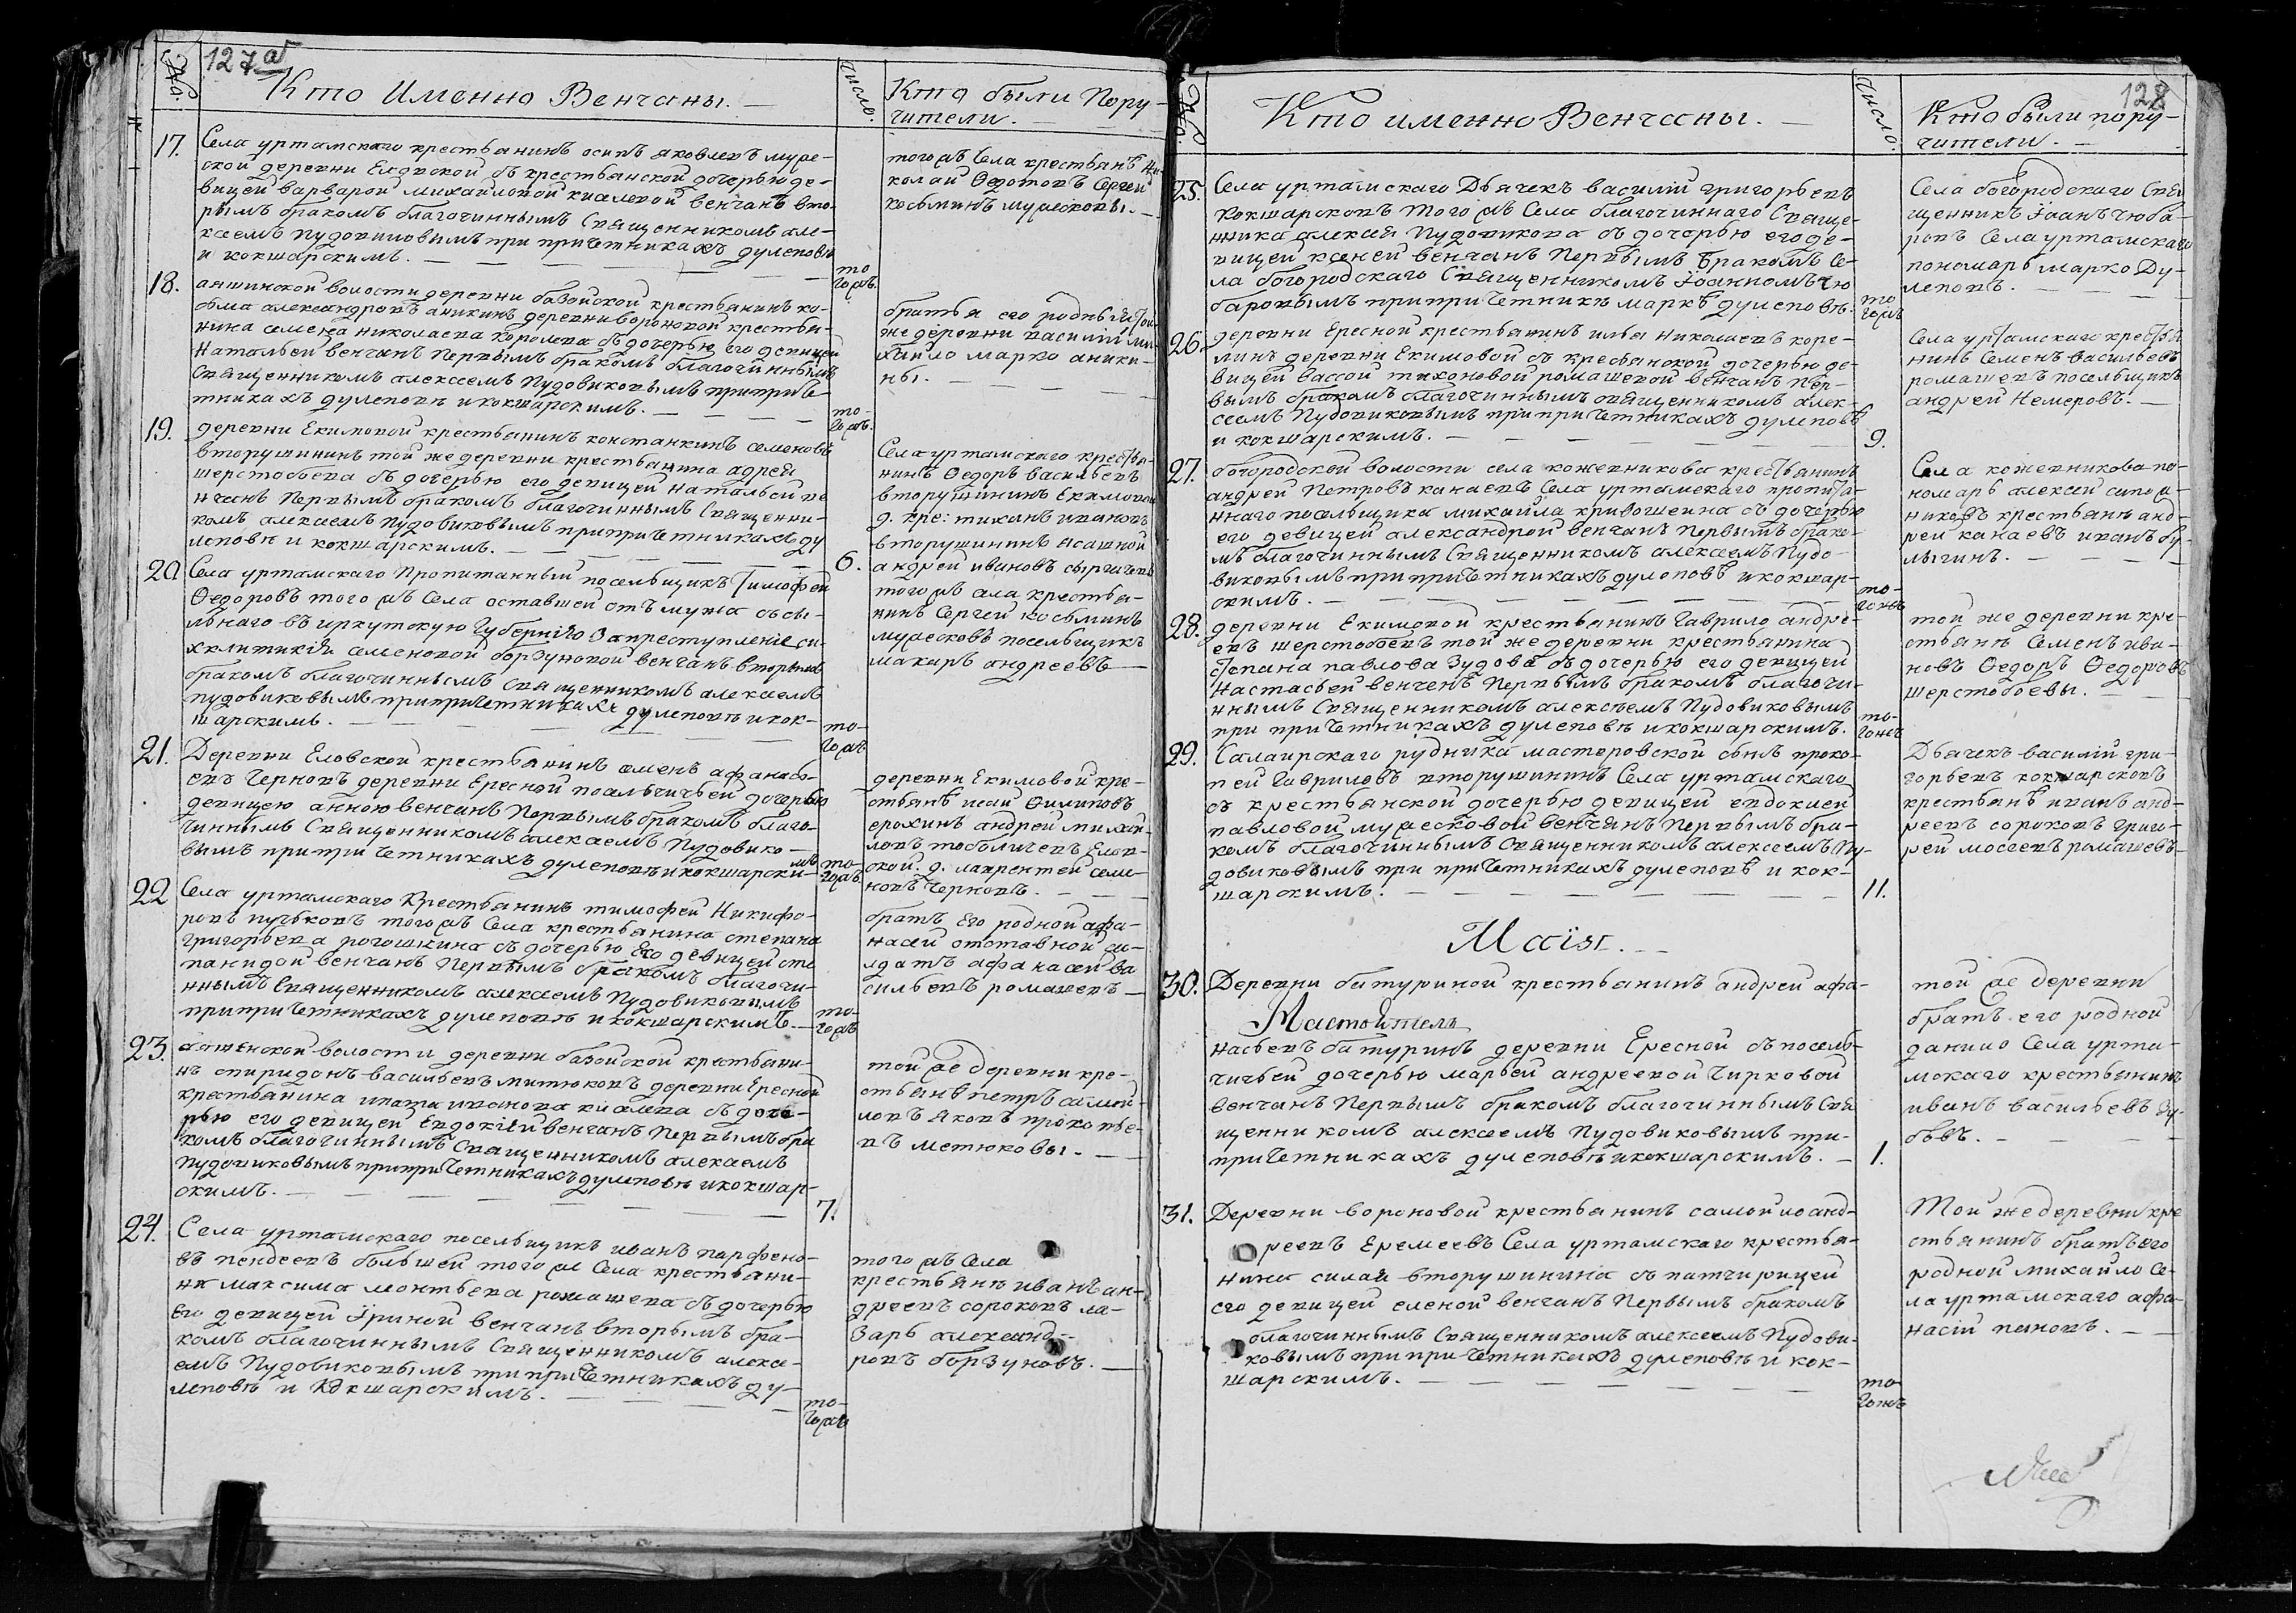 127 об
№.
Кто Именно Венчаны. —
число.
Кто были Пору-
чители. —
17.
Села уртамскаго крестьянинъ осипъ яковлевъ муре-
ской деревни Еловской съ крестьянской дочерью де-
вицей варварой михайловой киселевой венчанъ вто-
рымъ бракомъ благочиннымъ Священникомъ але-
ксеемъ пудовиковымъ при причетникахъ дулепови
и кокшарскимъ. —
то
гожъ.
того жъ Села крестьянѣ Ни-
колаи Ѳедотовъ Сергей
косьминъ муресковы. —
18.
волости деревни базойской крестьянинъ ко-
сьма александровъ аникинъ деревни вороновой крестья-
нина семена николаева королева съ дочерью его девицей
Натальей венчанъ первымъ бракомъ благочиннымъ
Священникомъ алексеемъ Пудовиковымъ при приче-
тникахъ дулеповѣ и кокшарскимъ. —
то-
гожъ.
братья его родныя той
же деревни василий ми-
хайло марко аники-
ны. —
19.
деревни Екимовой крестьянинъ констанкинъ семеновъ
вторушининъ той же деревни крестьянина адрея
шерстобоева съ дочерью его девицей Натальей ве
нчанъ первымъ бракомъ благочиннымъ Священни-
комъ алексеемъ пудовиковымъ при причетникахъ ду
леповѣ и кокшарскимъ. —
6.
Села уртамскаго крестья-
нинъ Ѳедоръ васильевъ
вторушининъ Екимовой
д. кре: тихонъ ивановъ
вторушининъ ясашной
андрей ивановъ сыргичевъ
20
Села уртамскаго Пропитанный посельщикъ Тимофей
Ѳедоровъ того жъ Села оставшей отъ мужа съсы-
льнаго въ иркутскую Губернию за преступление си-
хклитикіи семеновой борзуновой венчанъ вторымъ
бракомъ благочиннымъ священникомъ алексеемъ
пудовиковымъ при причетникахъ дулеповѣ и кок-
шарскимъ. —
то-
гожъ
того жъ села крестья-
нинъ Сергей косьминъ
муресковъ посельщикъ
макаръ андреевъ —
21.
Деревни Еловской крестьянинъ семенъ афанась-
евъ Черновъ деревни Ересной посельгичьей дочерью
девицею анною венчанъ первымъ бракомъ благо-
чиннымъ Священникомъ алексеемъ Пудовико-
вымъ при причетникахъ дулеповѣ и кокшарски-
мъ
то-
гожъ
деревни Екимовой кре-
стьянѣ исай Филиповъ
ерохинъ андрей михай-
ловъ тоболичевъ Елов-
ской. д. лаврентей семе-
новъ Черновъ. —
22
Села уртамскаго Крестьянинъ тимофей Никифо-
ровъ пучьковъ того жъ Села крестьянина степана
григорьева рогошкина съ дочерью Его девицей сте
панидой венчанъ первымъ бракомъ благочи-
ннымъ Священникомъ алексеемъ Пудовиковымъ
при причетникахъ дулеповѣ и кокшарскимъ. —
то-
гожъ
братъ Его родной афа-
насей отставной со-
лдатъ афанасей ва
сильевъ ромашевъ —
23.
волости деревни базойской крестьяни-
нъ спиридонъ васильевъ митюковъ деревни Ересной
крестьянина ипата иванова киселева съ доче-
рью его девицей Евдокией венчанъ Первымъ бра
комъ благочиннымъ Священникомъ алексеемъ
Пудовиковымъ при причетникахъ дулеповѣ и кокшар-
скимъ. —
7.
той же деревни кре-
стьянѣ петръ самой-
ловъ яковъ прокопье-
въ метюковы. —
24.
Села уртамскаго посельщикъ иванъ парфено-
въ пендеевъ большей того же Села крестьяни-
на максима леонтьева ромашева съ дочерью
его девицей Ириной венчанъ вторымъ бра-
комъ благочиннымъ Священникомъ алексе-
емъ Пудовиковымъ при причетникахъ ду-
леповѣ и Кокшарскимъ. —
то-
гожъ
того жъ Села
крестьянѣ иванъ ан-
дреевъ сороковъ ла-
зарь александ-
ровъ борзуновъ. —
128
№.
Кто именно Венчаны. —
число.
Кто были пору-
чители. —
25.
Села уртамскаго Дьячекъ василий григорьевъ
кокшарсковъ того жъ Села благочиннаго Свяще-
нника алексея Пудовикова съ дочерью его де-
вицей ксеней венчанъ Первымъ бракомъ Се-
ла богородскаго Священникомъ Iоанномъ Чю
баровымъ при причетнике маркѣ дулеповѣ.
то
гожъ
Села богородскаго Свя
щенникъ Iоанъ чюба-
ровъ Села уртамскаго
пономарь марко Ду-
леповъ. —
26.
деревни Ересной крестьянинъ илья николаевъ коре-
линъ деревни Екимовой съ кресьянской дочерью де-
вицей вассой тихоновой ромашевой венчанъ пер-
вымъ бракомъ благочиннымъ священникомъ алек-
сеемъ Пудовиковымъ при причетникахъ дулеповѣ
и кокшарскимъ. —
9.
Села уртамскаго крестья
нинъ Семенъ васильевъ
ромашевъ посельщикъ
андрей Немеровъ. —
27.
богородской волости села кожевникова крестьянинъ
андрей Петровъ канаевъ Села уртамскаго пропита-
ннаго посельщика михайла кривошеина съ дочерью
его девицей александрой венчанъ первымъ брако-
мъ благочиннымъ Священникомъ алексеемъ Пудо-
виковымъ при причетникахъ дулеповѣ и кокшар-
скимъ. —
то-
гожъ
Села кожевникова по-
номарь алексей сапож-
никовъ крестьянѣ анд-
рей канаевъ иванъ бу-
лыгинъ. —
28.
деревни Екимовой крестьянинъ Гаврило андре-
евъ шерстобоевъ той же деревни крестьянина
степана павлова Зудова съ дочерью его девицей
Настасьей венченъ Первымъ бракомъ благочи-
ннымъ Священникомъ алексеемъ Пудовиковымъ
при причетникахъ дулеповѣ и кокшарскимъ.
то-
гожъ
той же деревни кре-
стьянѣ Семенъ ива-
новъ Ѳедоръ Ѳедоровъ
шерстобоевы.
29.
Салаирскаго рудника мастеровской сынъ проко-
пей Гавриловъ вторушининъ Села уртамскаго
съ крестьянской дочерью девицей евдокией
павловой муресковой венчянъ первымъ бра-
комъ благочиннымъ священникомъ алексеемъ Пу-
довиковымъ при причетникахъ дулеповѣ и кок-
шарскимъ. —
11.
Дьячекъ василий гри-
горьевъ кокшарсковъ
крестьянѣ иванъ анд-
реевъ сороковъ григо-
рей мосеевъ ромашевъ —
Маiя. —
30.
Деревни батуриной крестьянинъ андрей афа-
Настоятель
насьевъ батуринъ деревни Ересной съ посель-
гичьей дочерью марьей андреевой Чирковой
венчанъ первымъ бракомъ благочиннымъ Свя
щенникомъ алексеемъ Пудовиковымъ при-
причетникахъ дулеповѣ и кокшарскимъ. —
1.
той же деревни
братъ его родной
данило Села урта-
мскаго крестьянинъ
иванъ васильевъ
31.
Деревни вороновой крестьянинъ самойло анд-
реевъ Еремеевъ Села уртамскаго крестья-
нина силая вторушинина съ патчирицей
его девицей еленой венчанъ первымъ бракомъ
благочиннымъ Священникомъ алексеемъ Пудови-
ковымъ при причетникахъ дулеповѣ и кок-
шарскимъ. —
то-
гожъ
Той же деревни кре
стьянинъ братъ его
родной михайло Се-
ла уртамскаго афа-
насий пановъ. —